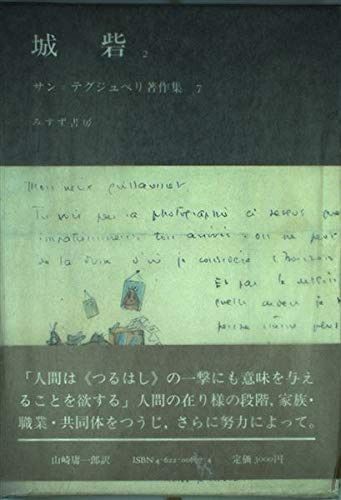 城砦 2
サン=テグジュペリ著作集 7
みすず書房
Mon vieux Guillaumet
Tu vois par la photographie ci dessus que
impatiemment ton arrivée. On ne peut
de la
Et par le dessin
quelle
「人間は《つるはし》の一撃にも意味を与え
ることを欲する」人間の在り様の段階、家族・
職業・共同体をつうじ、さらに努力によって。
山崎庸一郎訳 ISBN4-622-00667-4 定価3000円